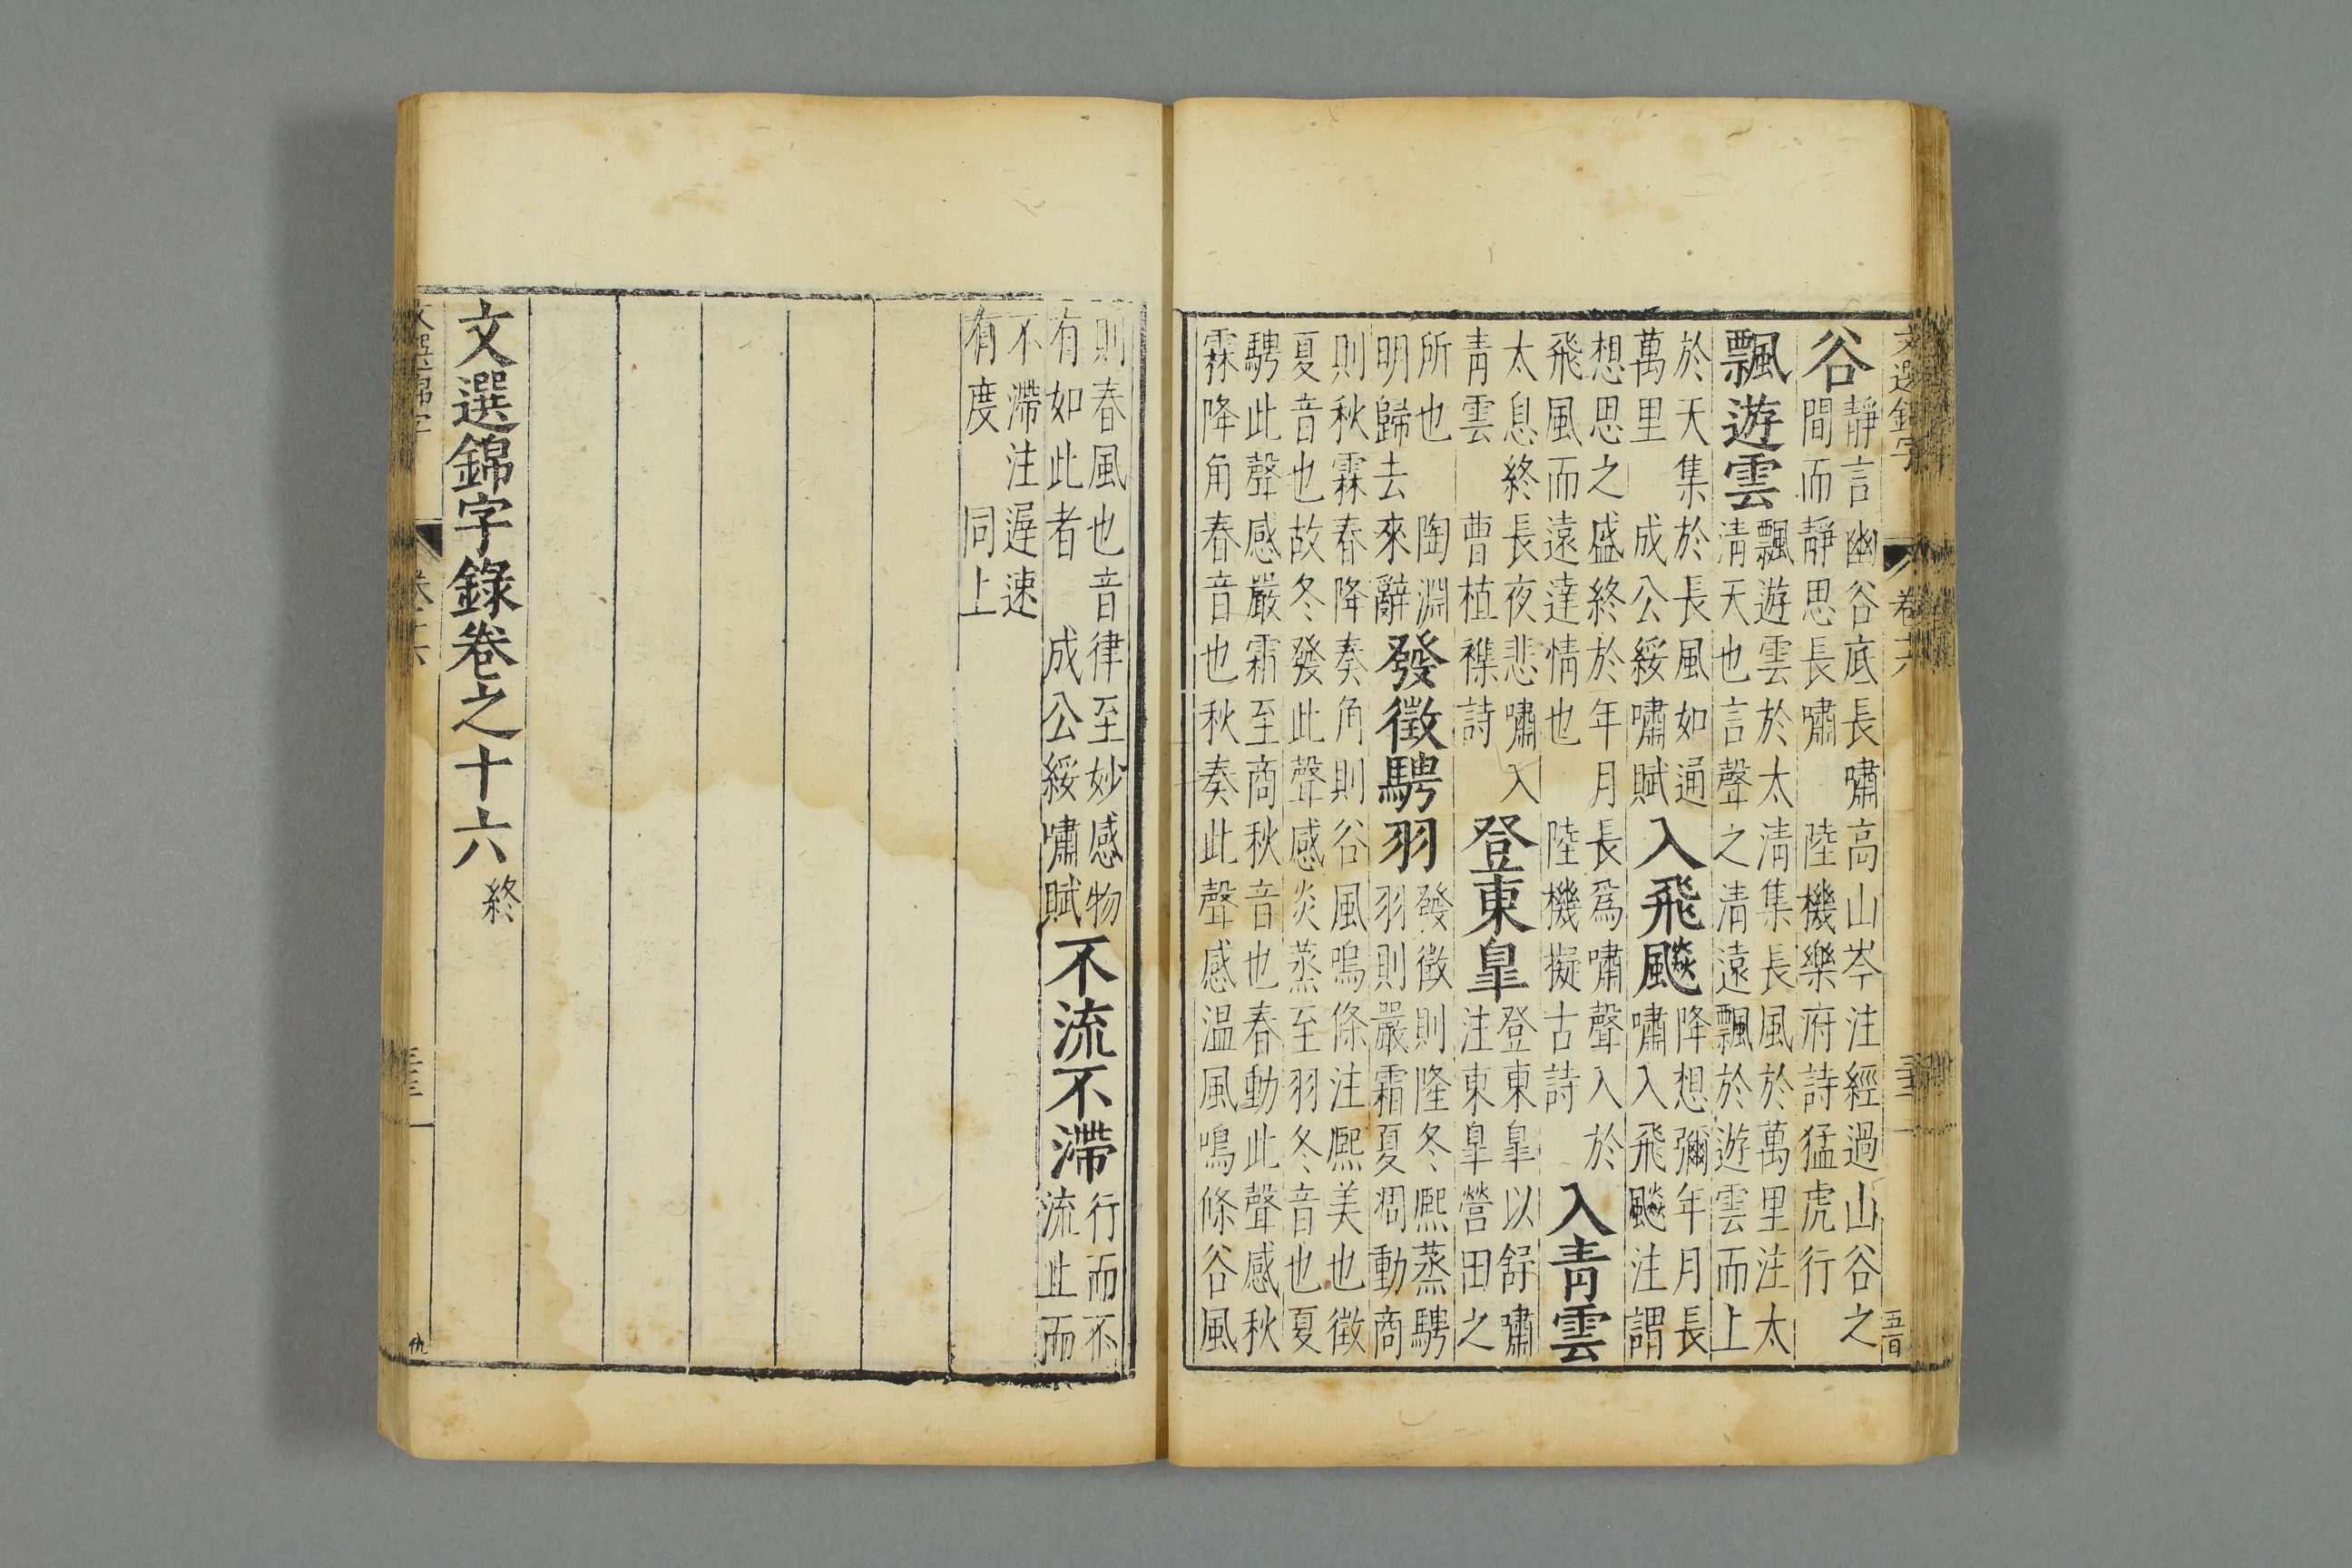 文選錦字 卷十六
谷
靜言幽谷底長嘯高山岑注經過山谷之
間而靜思長嘯 陸機樂府詩猛虎行
飄遊雲
飄遊雲於太清集長風於萬里注太
清天也言聲之清遠飄於遊雲而上
於天集於長風如通
萬里 成公綏嘯賦
入飛飈
降想彌年月長
嘯入飛飈注謂
想思之盛終於年月長為嘯聲入於
飛風而遠達情也 陸機擬古詩
入青雲
太息終長夜悲嘯入
青雲 曹植襍詩
登東皐
登東皐以舒嘯
注東皐營田之
所也 陶淵
明歸去來辭
發徵騁羽
發徵則隆冬熈蒸騁
羽則嚴霜夏凋動商
則秋霖春降奏角則谷風鳴條注熈美也徵
夏音也故冬發此聲感炎蒸至羽冬音也夏
騁此聲感嚴霜至商秋音也春動此聲感秋
霖降角春音也秋奏此聲感温風鳴條谷風
則春風也音律至妙感物
有如此者 成公綏嘯賦
不流不滯
行而不
流止而
不滯注遲速
有度 同上
文選錦字錄卷之十六 終